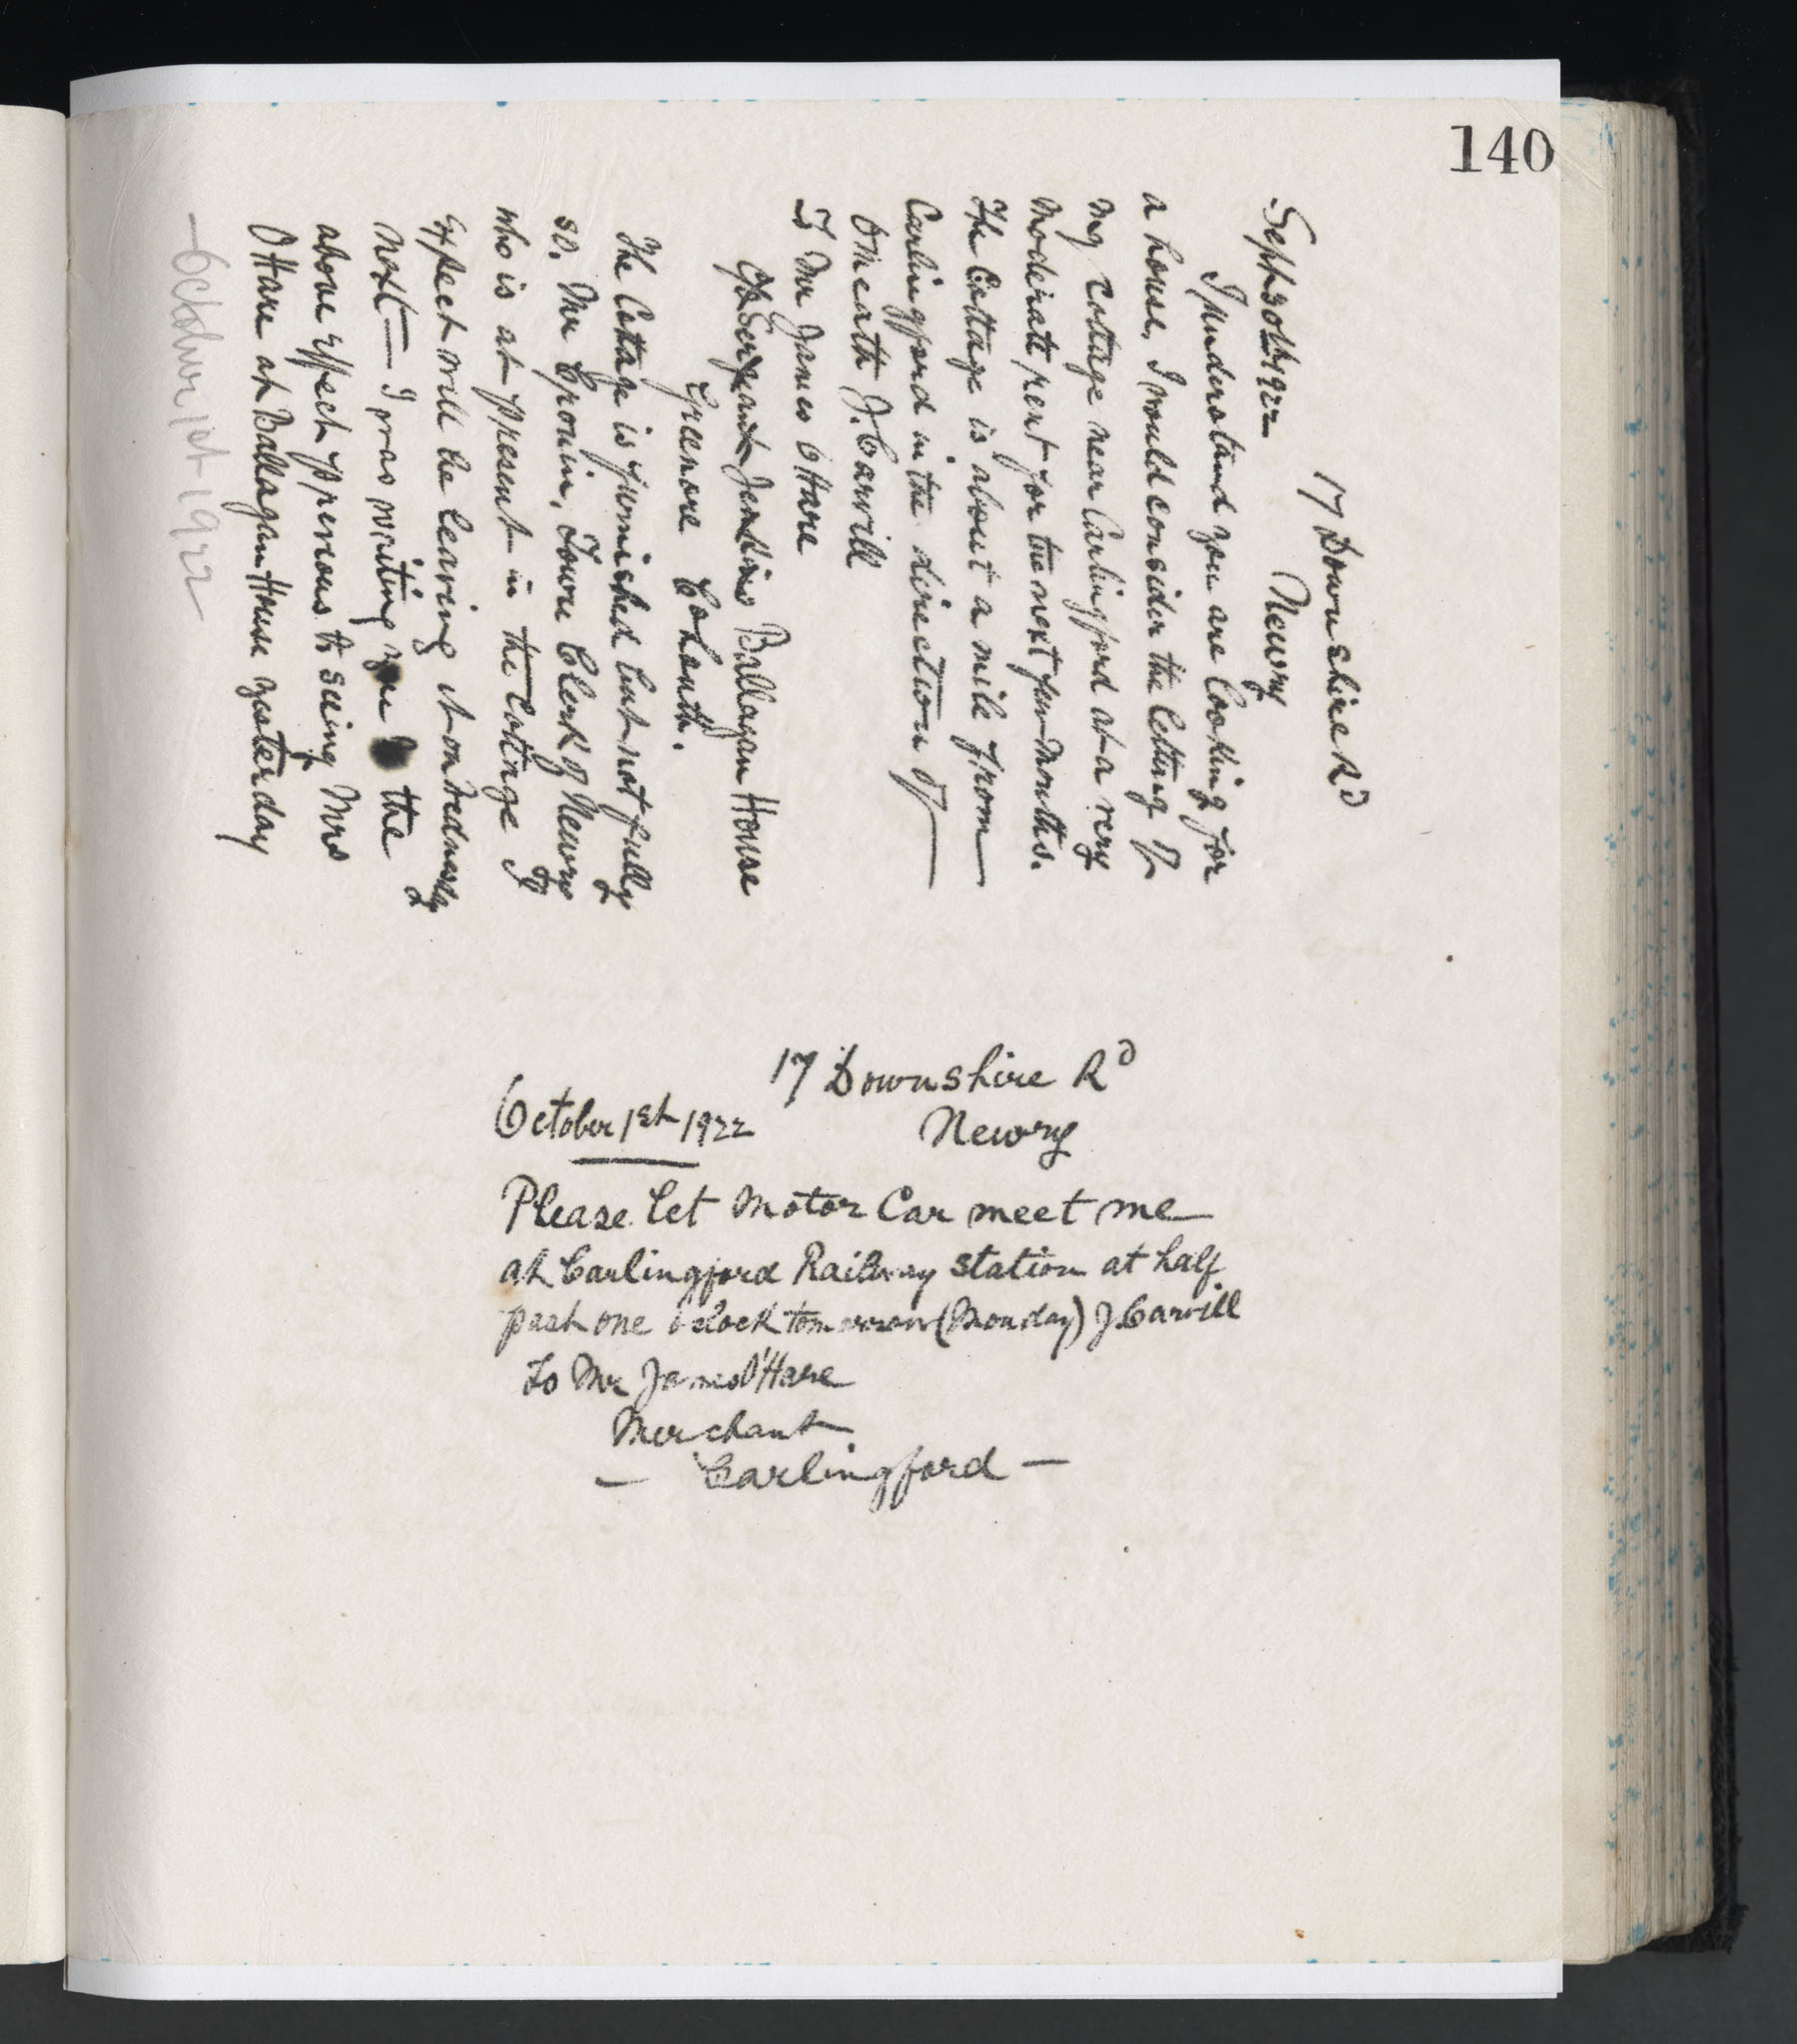 140
17 Downshire Rd
Newry
Sept 30th 1922
I understand you are looking for
a house, I would consider the letting of
my cottage near Carlingford at a very
moderate rent for the next few months.
The Cottage is about a mile from
Carlingford in the direction of
Omeath J. Carvill
To Mr James O Hare
c/o Sergeant Jenkins Ballagan House
Greenore Co Louth.
The Cottage is furnished but not fully
so. Mr Cronin, Town Clerk of Newry
who is at present in the Cottage I
expect will be leaving it on Wednesday
next — I was writing you the
above effect previous to seeing Mrs
O Hare at Ballagan House yesterday
— October 1st 1922 —
17 Downshire Rd
October 1st 1922 Newry
Please let Motor Car meet me
at Carlingford Railway station at half
past one o clock tomorrow (Monday) J Carvill
To Mr James O'Hare
Merchant
— Carlingford —